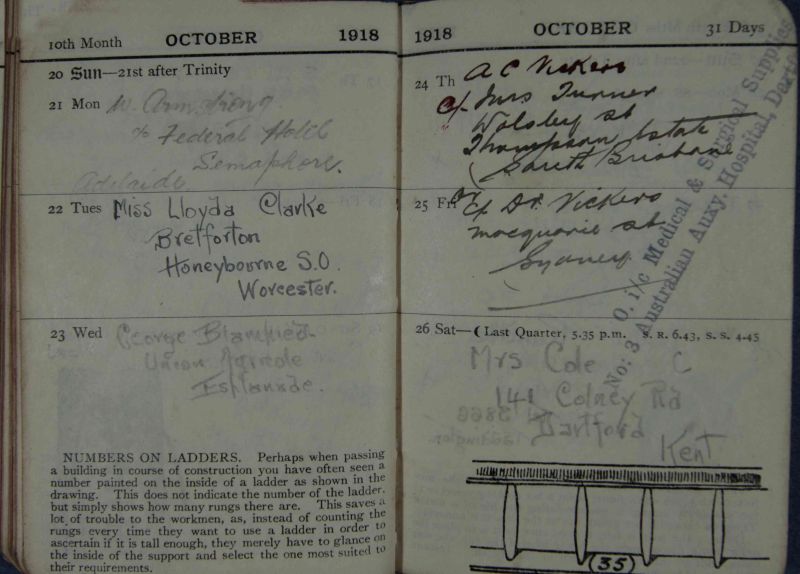 10th Month OCTOBER 1918
20 Sun—21st after Trinity
21 Mon W. Armstrong
c/o Federal Hotel
Semaphore.
Adelaide
22 Tues Miss Lloyda Clarke
Bretforton
Honeybourne S.O.
Worcester.
23 Wed George Blampied
Union Agricole
Esplanade.
NUMBERS ON LADDERS. Perhaps when passing
a building in course of construction you have often seen a
number painted on the inside of a ladder as shown in the
drawing. This does not indicate the number of the ladder,
but simply shows how many rungs there are. This saves a
lot of trouble to the workmen, as, instead of counting the
rungs every time they want to use a ladder in order to
ascertain if it is tall enough, they merely have to glance on
the inside of the support and select the one most suited to
their requirements.
1918 OCTOBER 31 Days
24 Th A C Vickers
c/- Mrs Turner
Wolseley st
Thompson Estate
South Brisbane
25 Fri Dr Vickers
Macquarie st
Sydney
26 Sat—(Last Quarter, 5.35 p.m. S. R. 6.43, S. S. 4.45
Mrs Cole C
141 Colney Rd
Dartford
Kent
(35)
O. i/c Medical & Surgical Supplies
No: 3 Australian Auxy. Hospital, Dartf